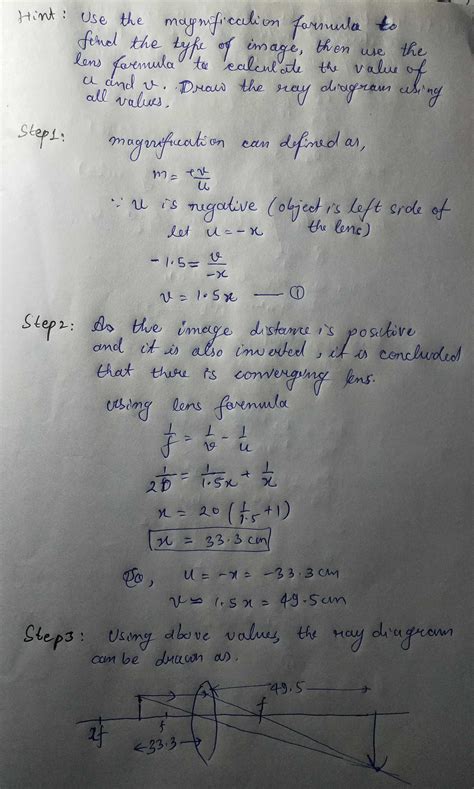 Hint: Use the magnification formula to
find the type of image, then use the
lens formula to calculate the value of
u and v. Draw the ray diagram using
all values.
Step1: magnification can defined as,
m = +v/u
∵ u is negative (object is left side of
let u = -x the lens)
-1.5 = v/-x
v = 1.5x — ①
Step2: As the image distance is positive
and it is also inverted, it is concluded
that there is converging lens.
using lens formula
1/f = 1/v - 1/u
1/20 = 1/1.5x + 1/x
x = 20 (1/1.5 + 1)
x = 33.3 cm
So, u = -x = -33.3 cm
v = 1.5x = 49.5 cm
Step3: Using above values, the ray diagram
can be drawn as.
49.5
2f f f
33.3